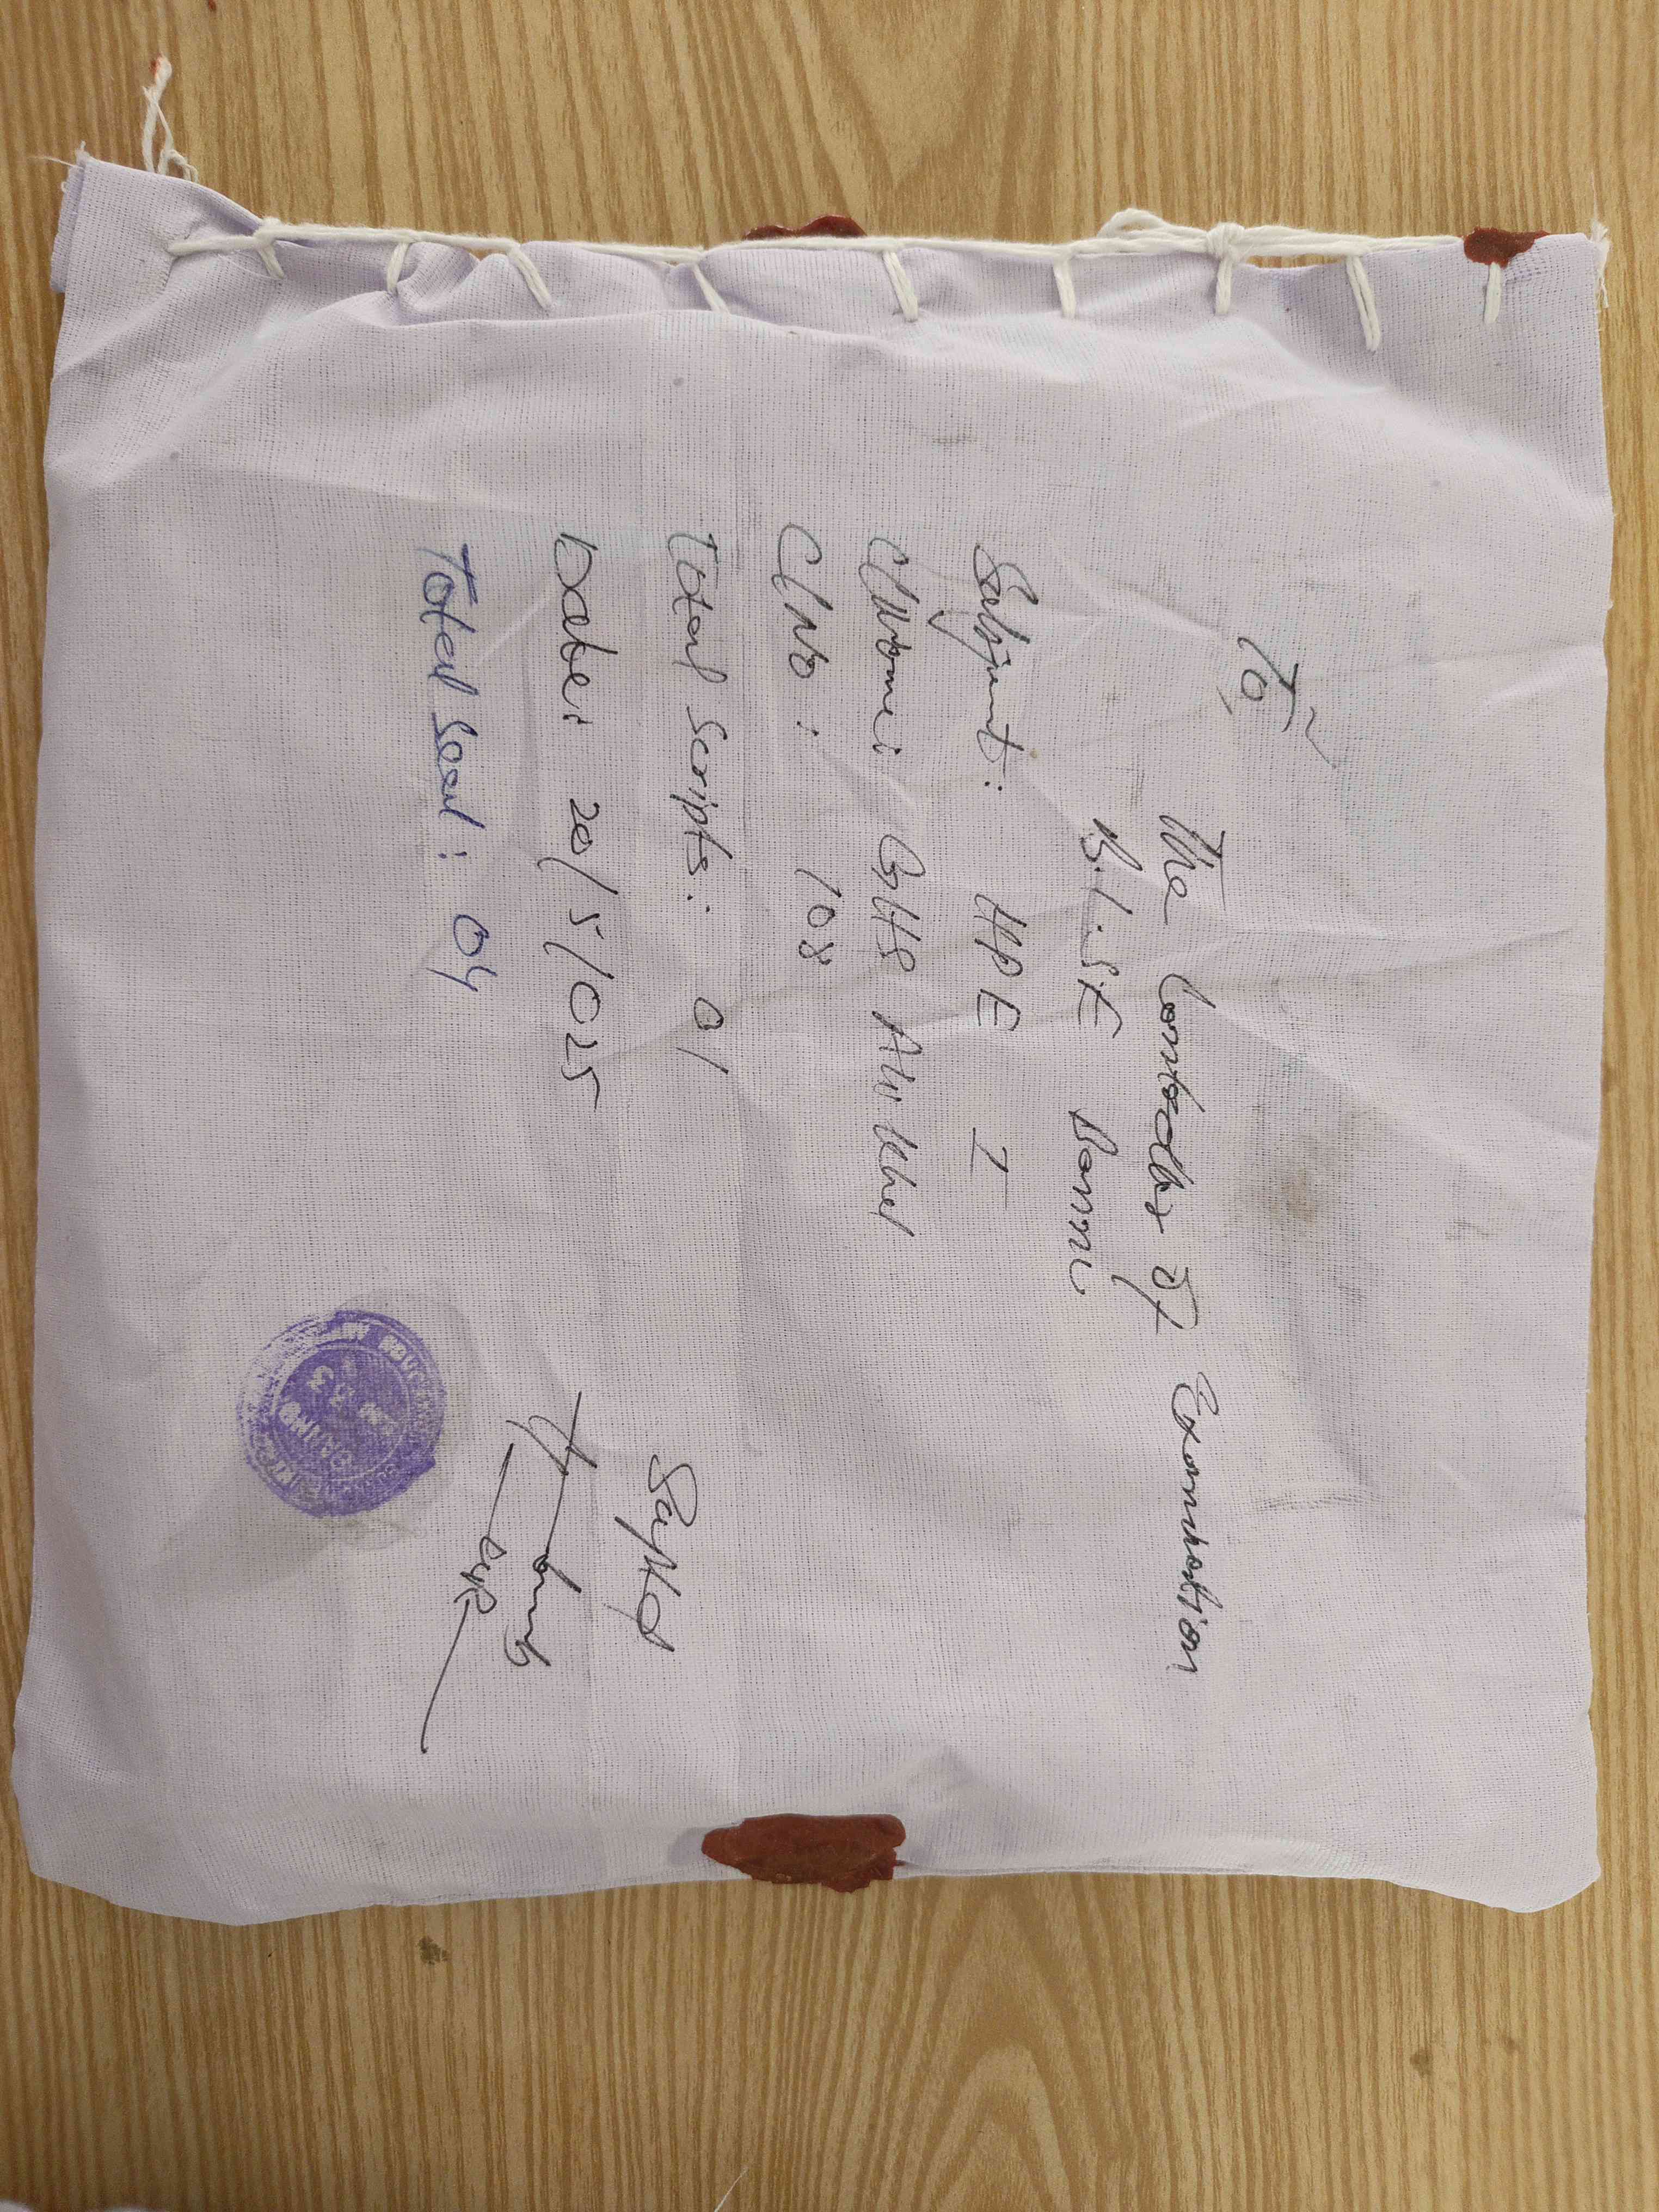 To,
The Controller of Examination
B.I.S.E Bannu
Subject: HPE I
C/Name: GHS
C/No: 108
Total Scripts: 01
Date: 20/5/025
Total Seal: 04